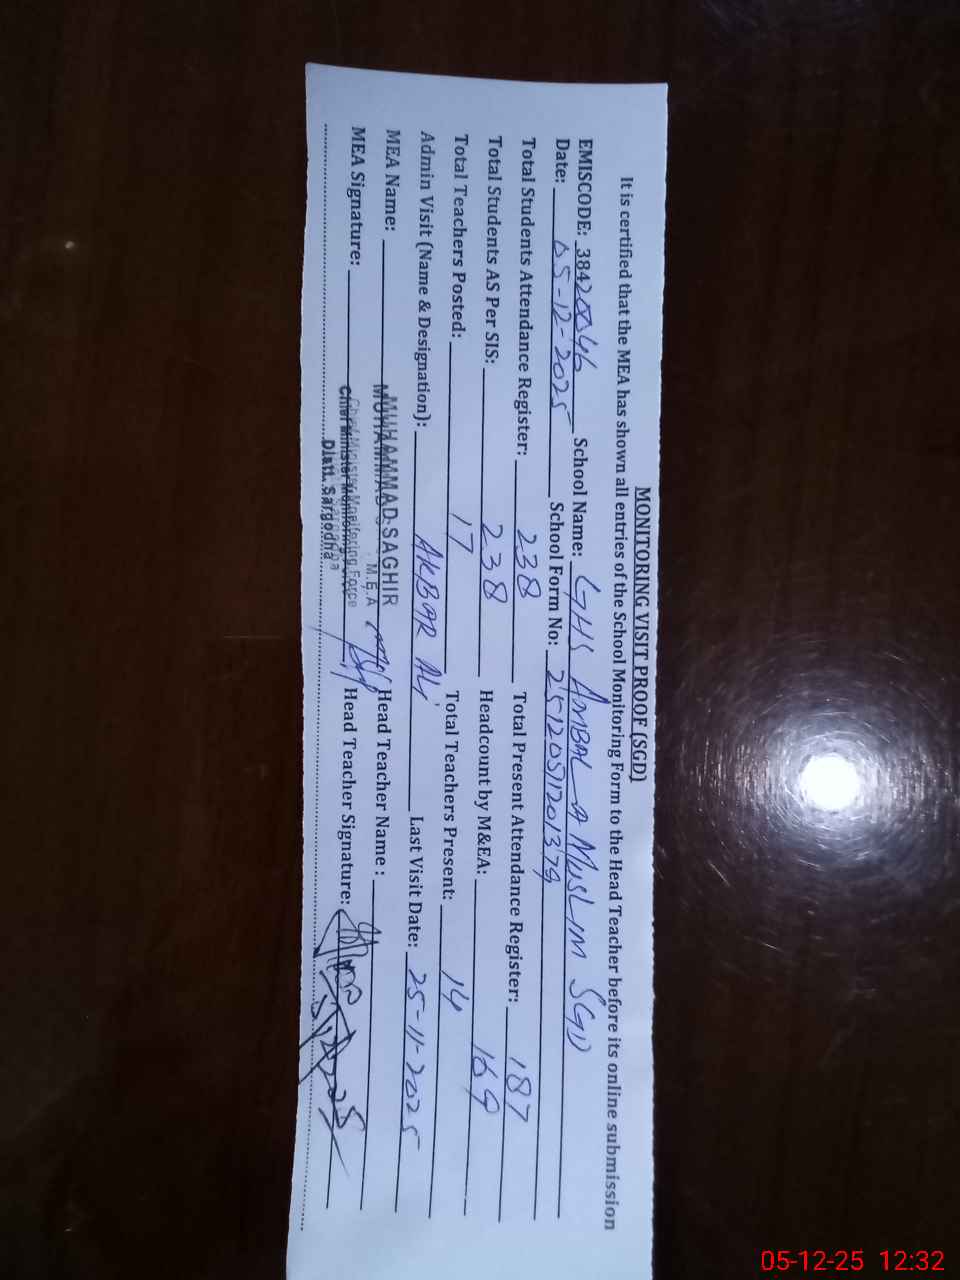 MONITORING VISIT PROOF (SGD)
It is certified that the MEA has shown all entries of the School Monitoring Form to the Head Teacher before its online submission
EMISCODE: 38420046 School Name: GHS AMBALA MUSLIM SGD
Date: 05-12-2025 School Form No: 251205112013 79
Total Students Attendance Register: 238 Total Present Attendance Register: 187
Total Students AS Per SIS: 238 Headcount by M&EA: 169
Total Teachers Posted: 17 Total Teachers Present: 14
Admin Visit (Name & Designation): AKBAR ALI Last Visit Date: 25-11-2025
MEA Name: MUHAMMAD SAGHIR M.E.A Head Teacher Name :
MEA Signature: Chief Minister Monitoring Force Head Teacher Signature:
Distt. Sargodha
05-12-25 12:32